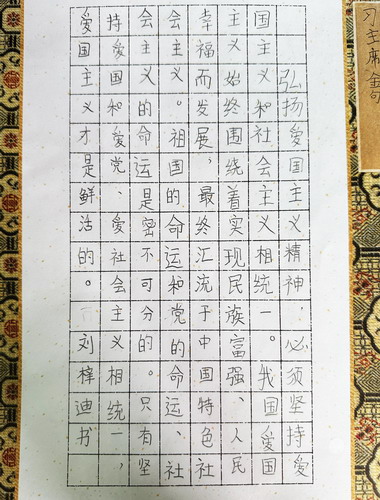 习主席
弘扬爱国主义精神,必须坚持爱
国主义和社会主义相统一。我国爱国
主义始终围绕着实现民族富强、人民
幸福而发展,最终汇流于中国特色社
会主义。祖国的命运和党的命运、社
会主义的命运是密不可分的。只有坚
持爱国和爱党、爱社会主义相统一,
爱国主义才是鲜活的。刘梓迪书